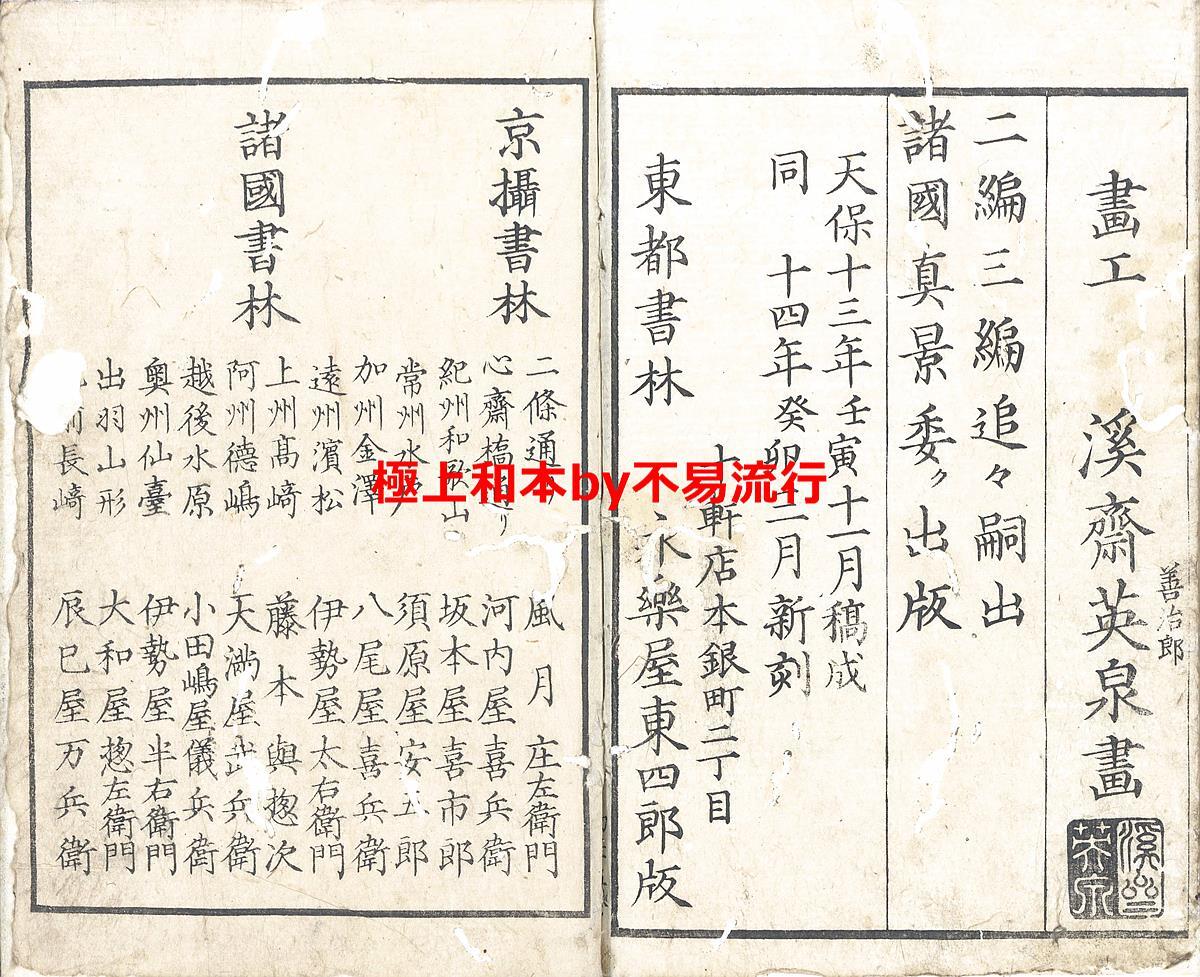 畫工 溪齋英泉畫
善治郎
溪齋
英泉
二編三編追々嗣出
諸國真景委ク出版
天保十三年壬寅十一月稿成
同 十四年癸卯二月新刻
軒店本銀町二丁目
東都書林 永樂屋東四郎版
京攝書林
二條通 風月庄左衛門
心齋橋通り 河内屋喜兵衛
諸國書林
紀州和歌山 坂本屋喜市郎
常州水戸 須原屋安五郎
加州金澤 八尾屋喜兵衛
遠州濱松 伊勢屋太右衛門
上州髙﨑 藤本與惣次
阿州德嶋 天満屋武兵衛
越後水原 小田嶋屋儀兵衛
奧州仙臺 伊勢屋半右衛門
出羽山形 大和屋惣左衛門
前長﨑 辰巳屋万兵衛
極上和本by不易流行